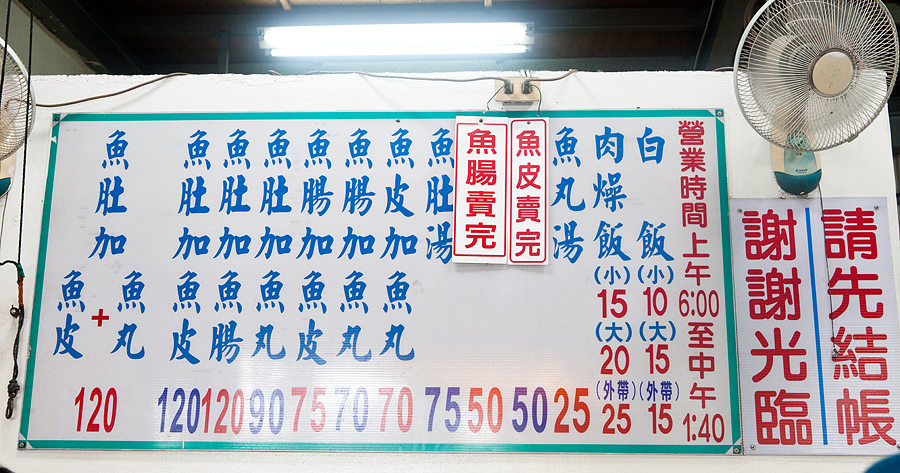 請先結帳
謝謝光臨
營業時間上午6:00至中午1:40
白飯(小)10(大)15(外帶)15
肉燥飯(小)15(大)20(外帶)25
魚丸湯25
魚皮賣完
50
魚腸賣完
50
魚肚湯75
魚皮加魚丸70
魚腸加魚丸70
魚腸加魚皮75
魚肚加魚丸90
魚肚加魚腸120
魚肚加魚皮120
魚肚加魚丸+魚皮120